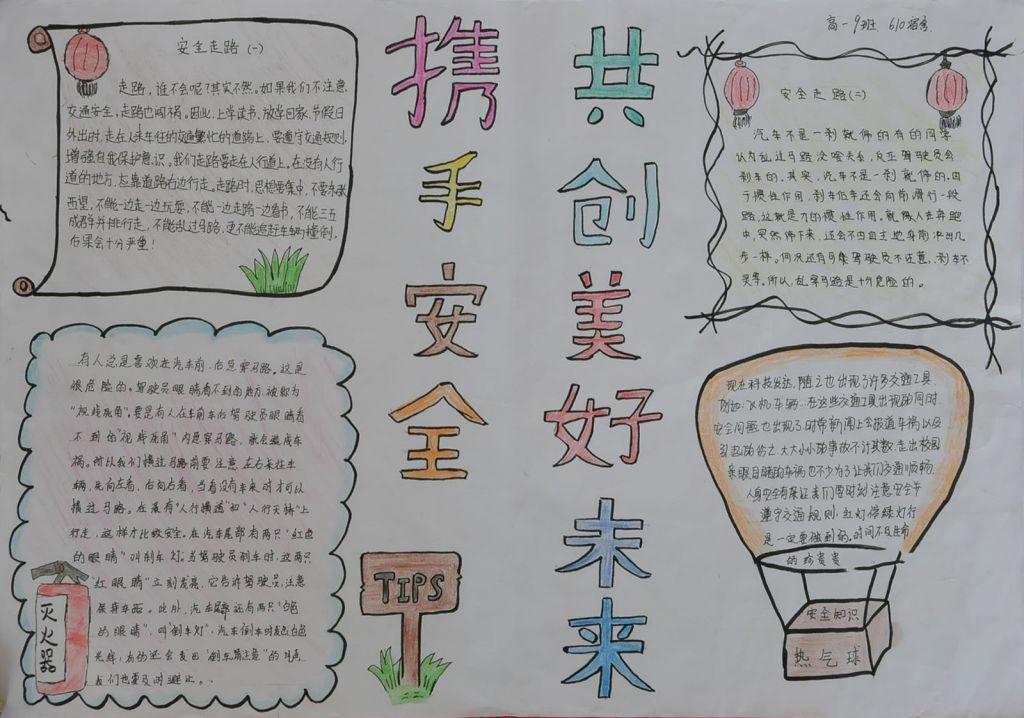 高一9班 610宿舍
携手安全
共创美好未来
安全走路(一)
走路,谁不会呢?其实不然。如果我们不注意
交通安全,走路也闯祸。因此,上学读书,放学回家,节假日
外出时,走在人来车往的交通繁忙的道路上,要遵守交通规则,
增强自我保护意识,我们走路要走在人行道上,在没有人行
道的地方,应靠道路右边行走。走路时,思想要集中,不要东张
西望,不能一边走一边玩耍,不能一边走路一边看书,不能三五
成群并排行走,不能乱过马路,更不能追赶车辆撞倒,
后果会十分严重!
安全走路(二)
汽车不是一刹就停的有的同学
认为乱过马路没啥关系,反正驾驶员会
刹车的,其实,汽车不是一刹就停的,由
于惯性作用,刹车后车还会向前滑行一段
路,这就是力的惯性作用。就像人在奔跑
中,突然停下来,还会不由自主地身前冲出几
步一样。何况还有可能驾驶员不注意,刹车不
灵等。所以,乱穿马路是十分危险的。
有人总是喜欢在汽车前、后急穿马路。这是
很危险的。驾驶员眼睛看不到的地方,被称为
"视线死角"。要是有人在车前车后驾驶员眼睛看
不到的"视线死角"内急穿马路,就会造成车
祸。所以我们横过马路前要注意左右长往车
辆,先向左看,后向右看,当看没有车来时才可以
横过马路。在最有"人行横道"和"人行天桥"上
行走,这样才比较安全。在汽车尾部有两只"红色
的眼睛"叫刹车灯,当驾驶员刹车时,这两只
"红眼睛"立刻发亮,它告诉驾驶员注意
保持车距。此外,汽车尾部还有两只"白色
的眼睛",叫"倒车灯",汽车倒车时发出白色
光线,有的还会发出"倒车请注意"的叫声
我们也要及时避让。
灭火器
TIPS
现在科技发达,随之也出现了许多交通工具
例如:飞机、车等。在这些交通工具出现的同时
安全问题也出现了时常新闻上会报道车祸以及
大大小小的事故不计其数,走出校园
亲眼目睹的车祸也不少为了让我们交通顺畅
人身安全有保证我们要时刻注意安全
遵守交通规则,红灯停绿灯行
是一定要做到的,时间不及生命
的珍贵贵
安全知识
热气球